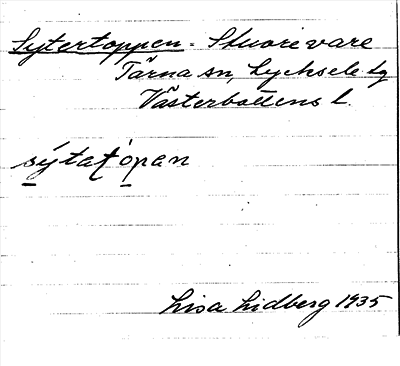 Sytertoppen = Stuorevare
Tärna sn, Lycksele lg
Västerbottens l.
sýtat́ópan
Lisa Lidberg 1935